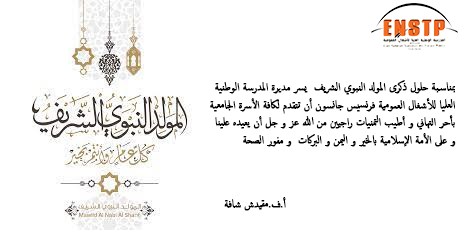 ENSTP
المدرسة الوطنية العليا للأشغال العمومية
المولد النبوي الشريف
كل عام وأنتم بخير
المولد النبوي الشريف
Mawlid Al Nabi Al Sharif
بمناسبة حلول ذكرى المولد النبوي الشريف يسر مديرة المدرسة الوطنية
العليا للأشغال العمومية فرنسيس جانسون أن تتقدم لكافة الأسرة الجامعية
بأحر التهاني و أطيب التمنيات راجيين من الله عز و جل أن يعيده علينا
و على الأمة الإسلامية بالخير و اليمن و البركات و مفور الصحة
أ.ف.مقيدش شافة